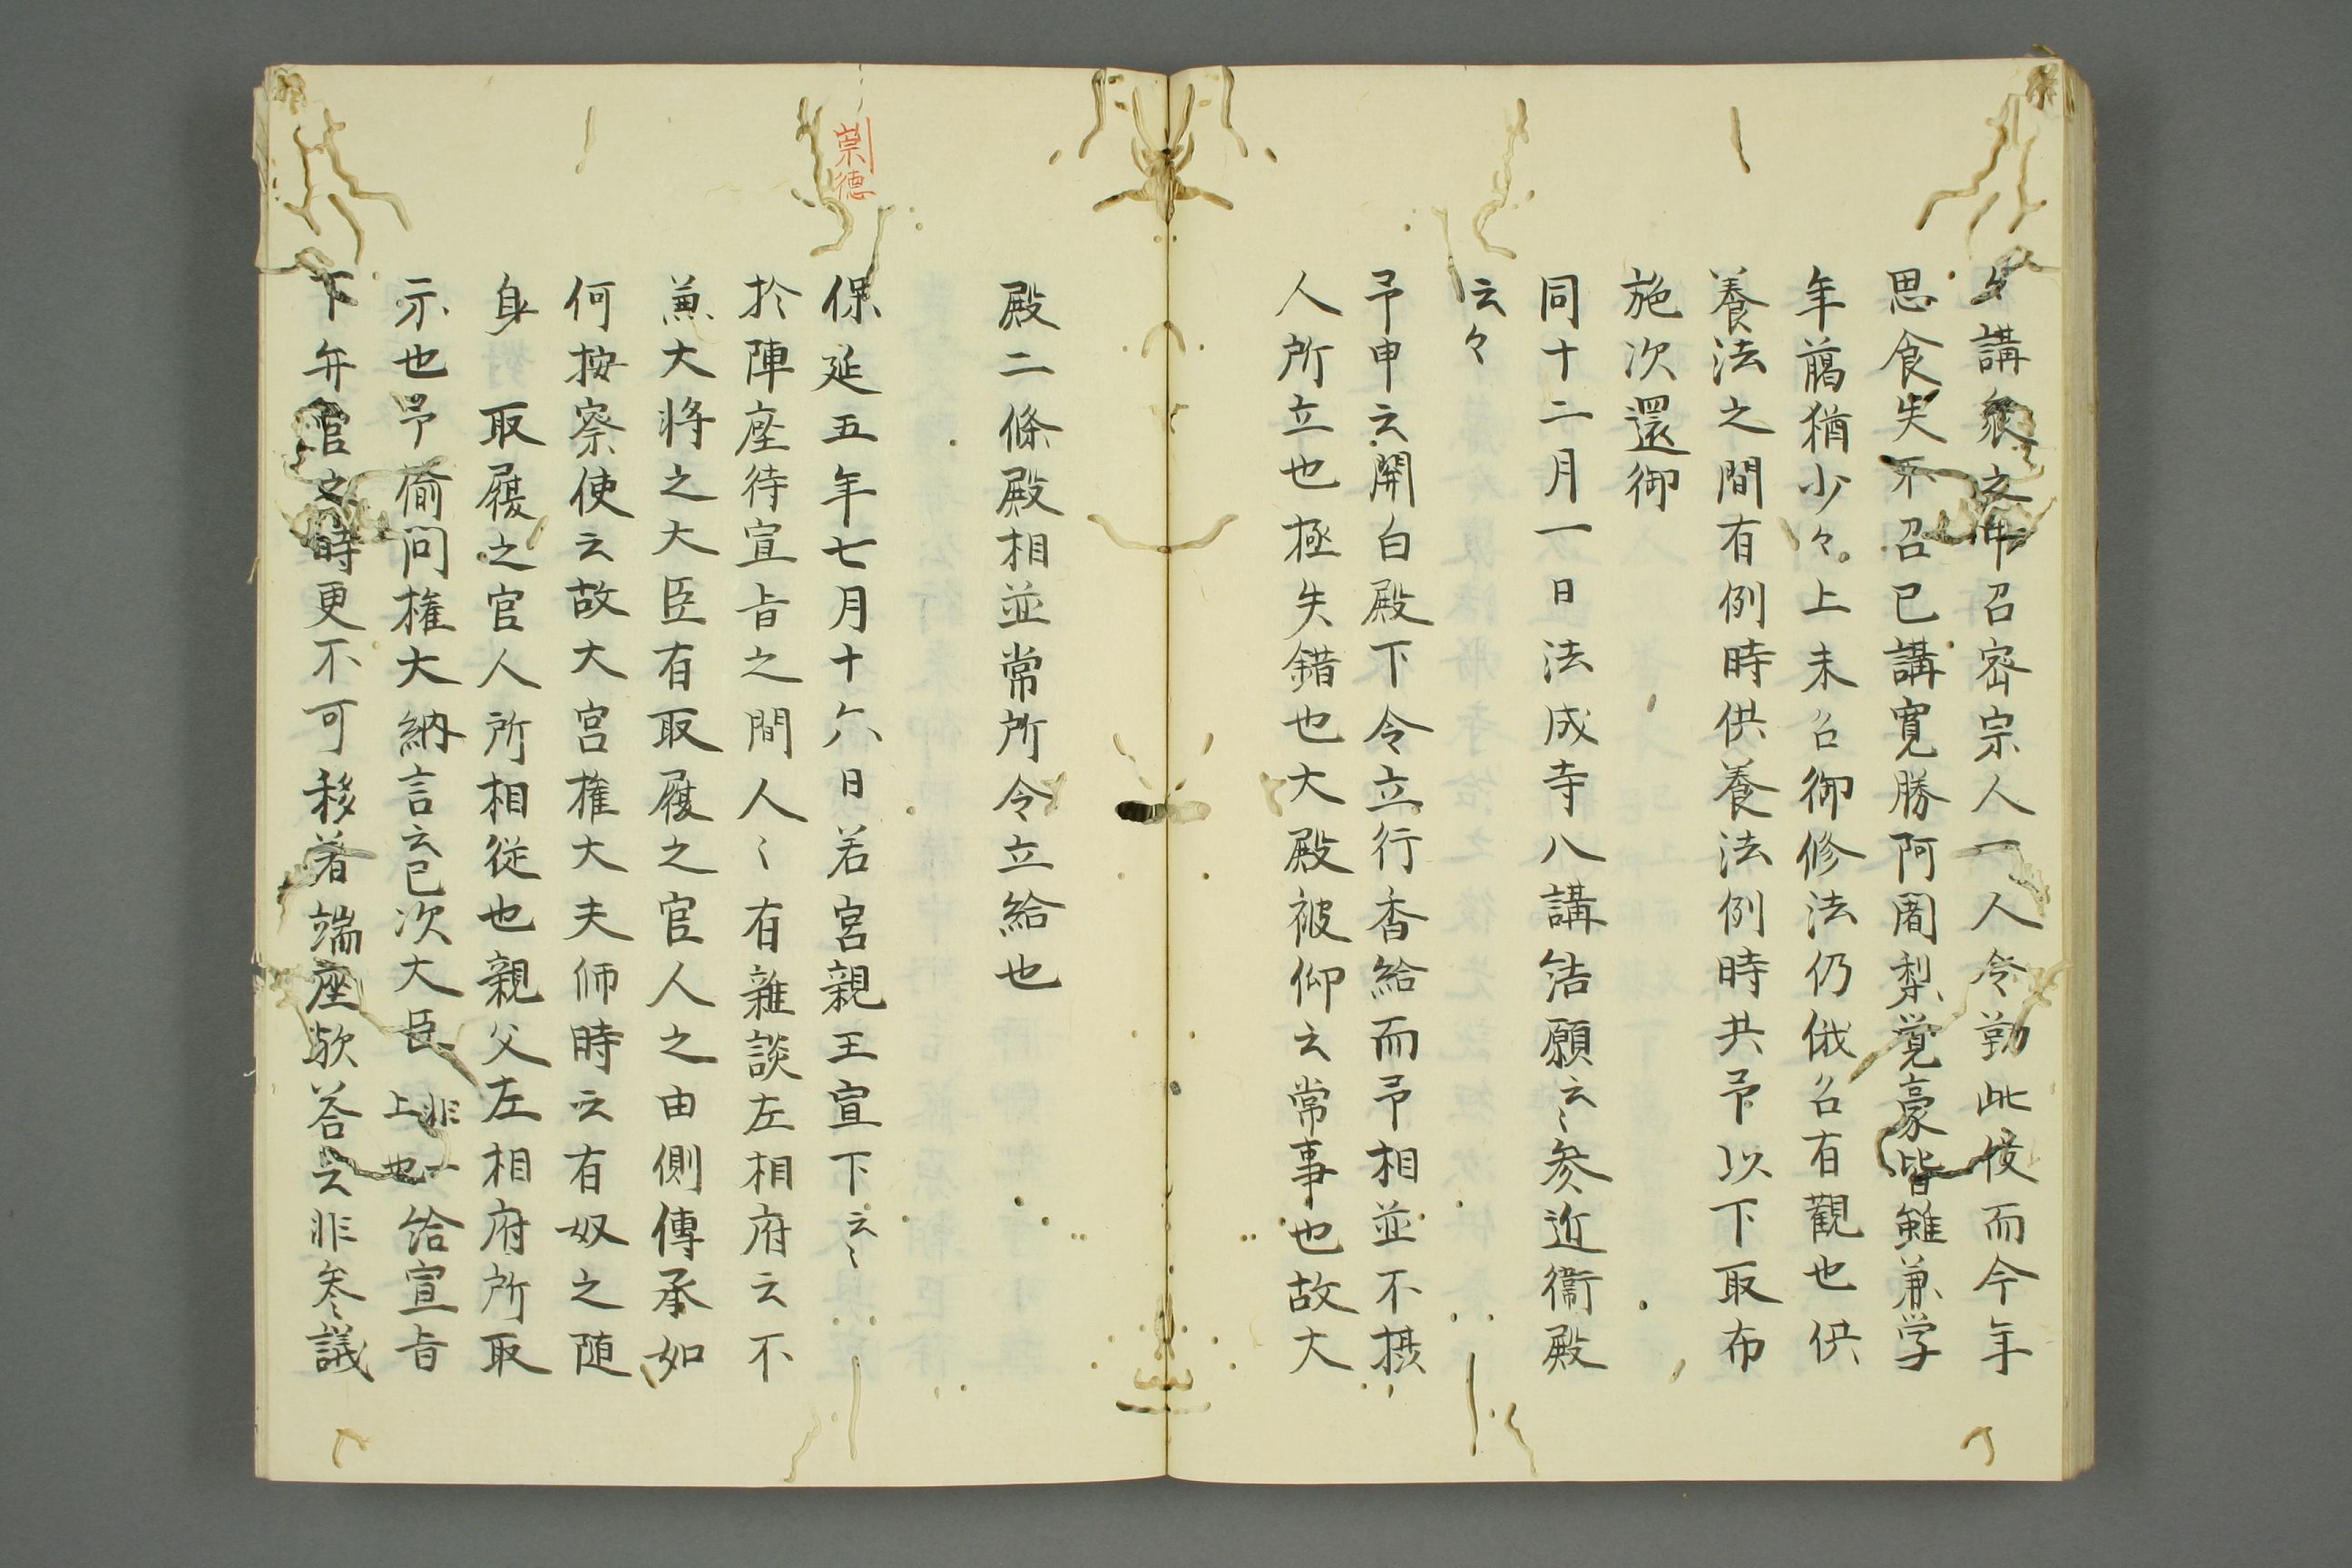 講衆之中召密宗人一人令勤此役而今年
思食失不召已講寛勝阿闍梨覚豪皆雖兼学
年﨟猶少々上未召御修法仍俄召有観也供
養法之間有例時供養法例時共予以下取布
施次還御
同十二月一日法成寺八講結願云〻参近衛殿
云々
予申云関白殿下令立行香給而予相並不摂
人所立也極失錯也大殿被仰云常事也故大
殿二條殿相並常所令立給也
崇徳
保延五年七月十六日若宮親王宣下云〻
於陣座待宣旨之間人〻有雑談左相府云不
兼大将之大臣有取履之官人之由側傳承如
何按察使云故大宮権大夫師時云有奴之随
身取履之官人所相従也親父左相府所取
示也予偷問権大納言云已次大臣非一上也給宣旨
下弁官之時更不可移着端座歟答云非参議